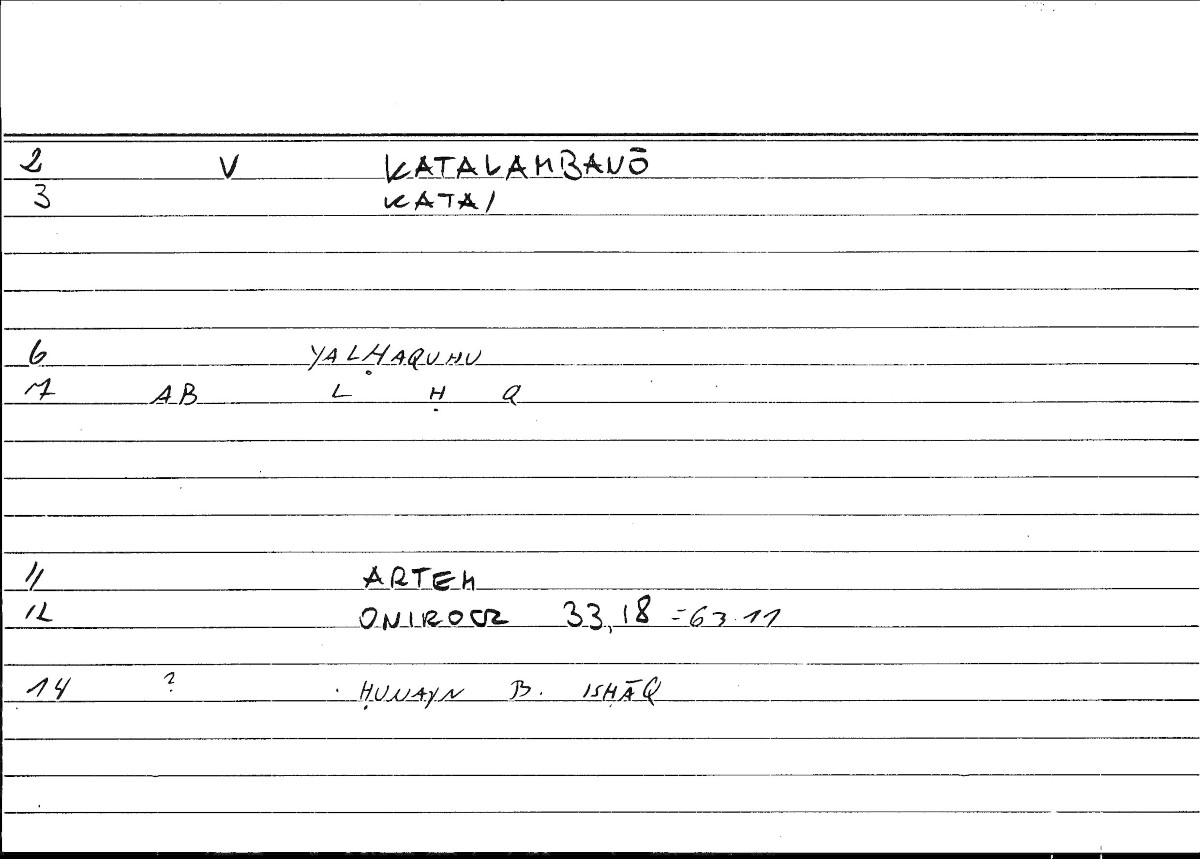 2 V KATALAMBANŌ
3 KATAI
6 YALḤAQUHU
7 AB L Ḥ Q
11 ARTEM
12 ONIROCR 33,18 = 63.11
14 ? ḤUNAYN B. ISḤĀQ